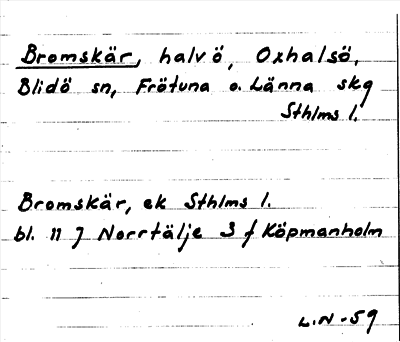 Bromskär, halvö, Oxhalsö,
Blidö sn, Frötuna o. Länna skg
Sthlms l.
Bromskär, ek Sthlms l.
bl. 11 J Norrtälje 3 f Köpmanholm
L.N -59